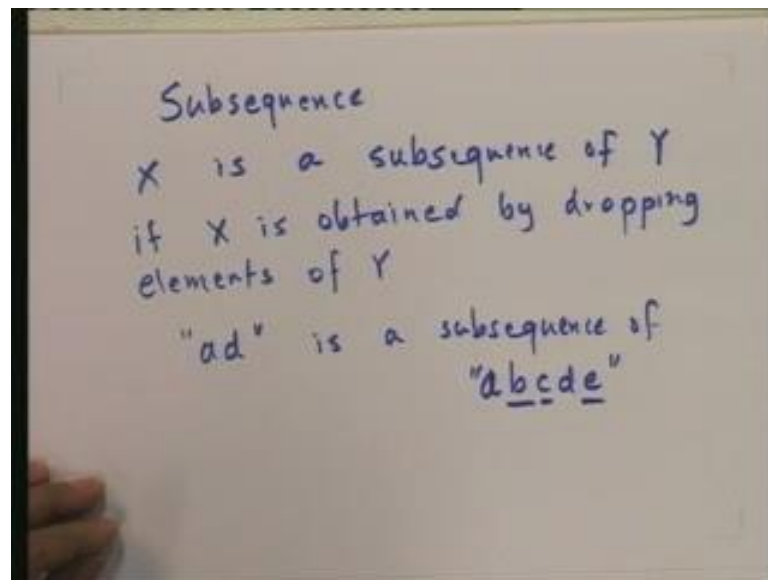 Subsequence
X is a subsequence of Y
if X is obtained by dropping
elements of Y
"ad" is a subsequence of
"abcde"